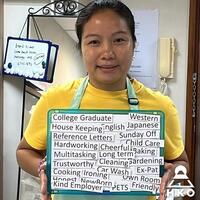 College Graduate
Western
House Keeping
English
Japanese
Reference Letters
Sunday Off
Hardworking
Cheerful
Child Care
Multitasking
Long term
Baking
Trustworthy
Cleaning
Gardening
Cooking
Ironing
Car Wash
Ex-Pat
Honest
NewBorn
Own Room
Kind Employer
PETS
Friendly